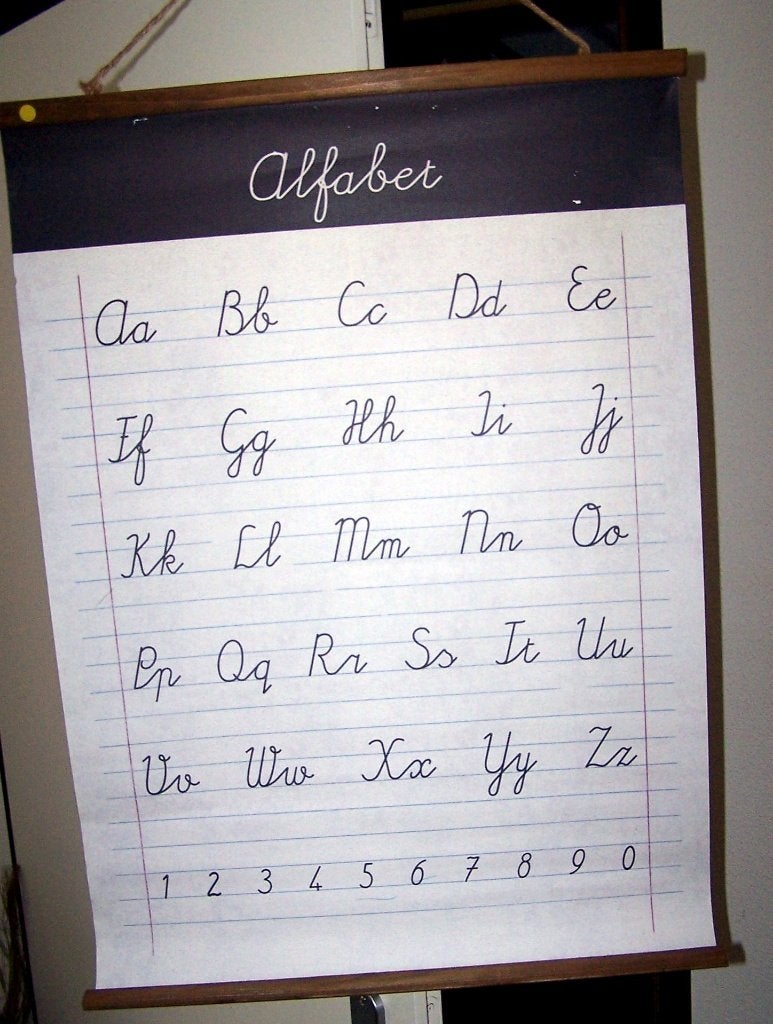 Alfabet
Aa Bb Cc Dd Ee
Ff Gg Hh Ii Jj
Kk Ll Mm Nn Oo
Pp Qq Rr Ss Tt Uu
Vv Ww Xx Yy Zz
1 2 3 4 5 6 7 8 9 0